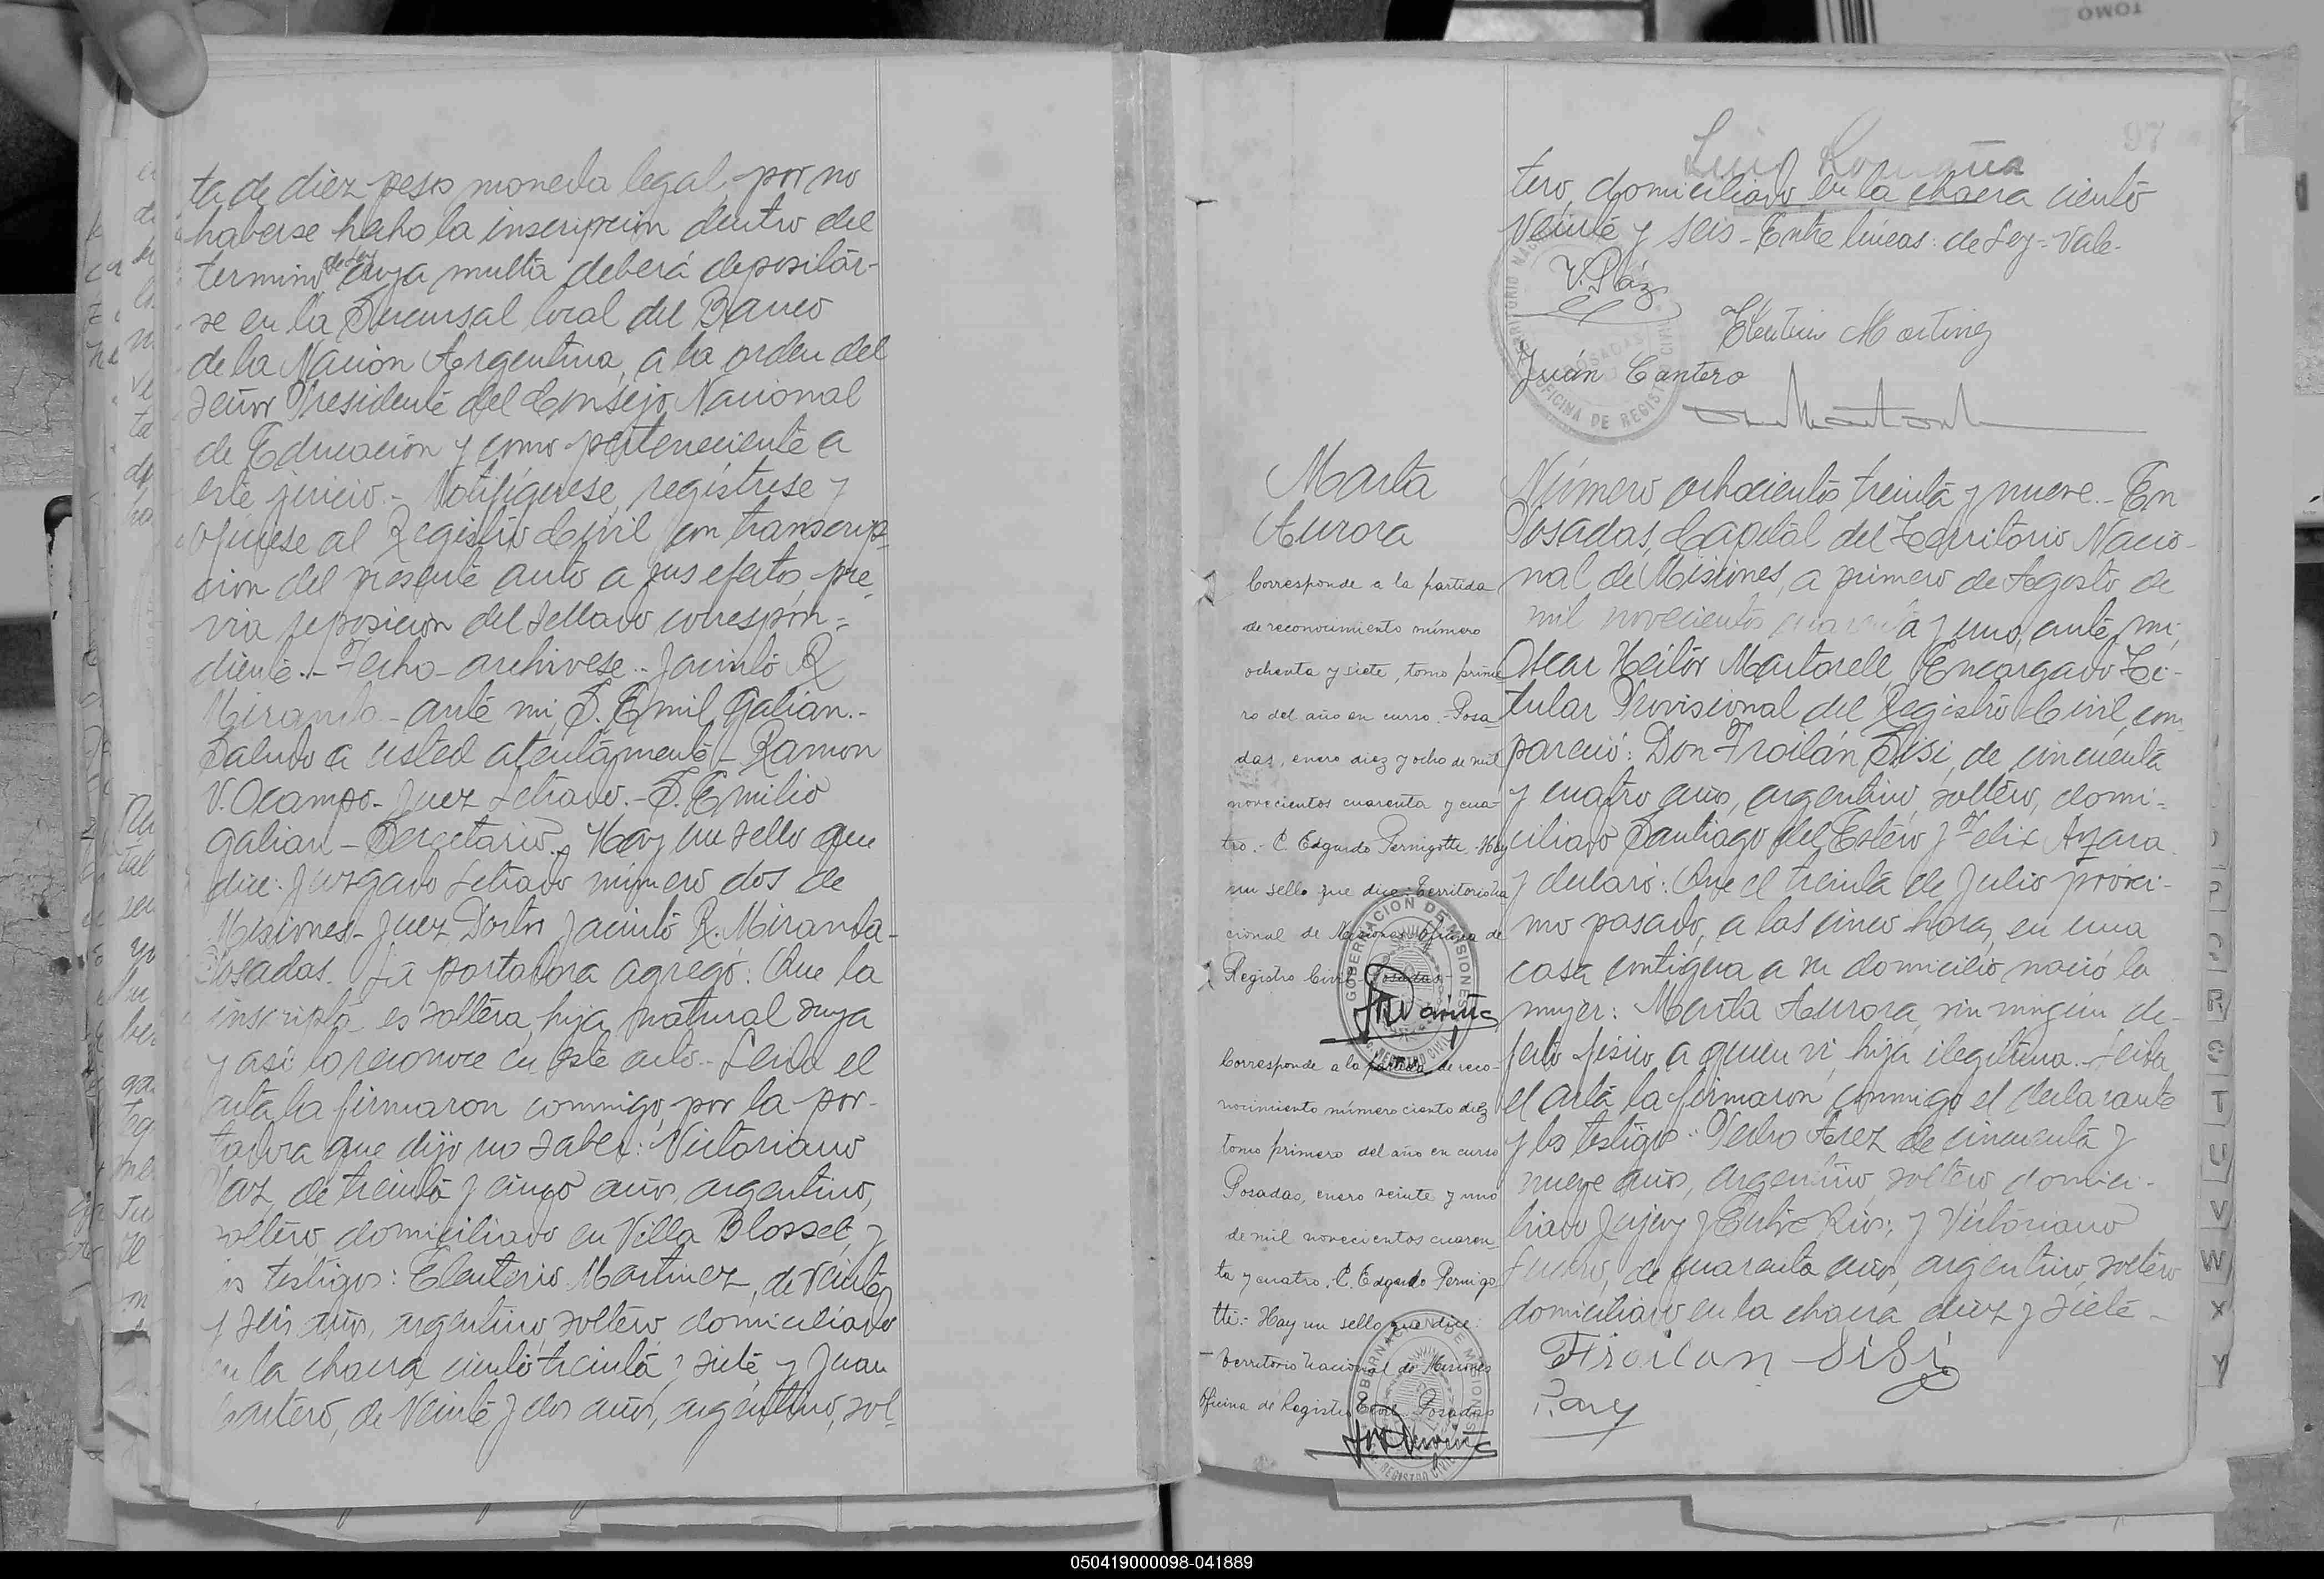 ta de diez pesos moneda legal, por no
haberse hecho la inscripción dentro del
termino de Ley cuya multa deberá depositar-
se en la Sucursal local del Banco
de la Nación Argentina, a la orden del
Señor Presidente del Consejo Nacional
de Educación y como perteneciente a
este juicio.- Notifíquese, regístrese y
ofíciese al Registro Civil con transcrip-
cion del presente auto a sus efectos, pre-
via reposición del sellado correspon=
diente.- Fecho- archívese.- Jacinto R
Miranda- ante mi, S. Emil Galian.-
Saludo a usted atentamente- Ramon
V. Ocampo- Juez Letrado.- S. Emilio
Galian- Secretario.- Hay un sello que
dice: Juzgado Letrado número dos de
Misiones- Juez Doctor Jacinto R. Miranda-
Posadas. La portadora agregó: Que la
inscripta es soltera, hija natural suya
y así lo reconoce en este acto.- Leida el
acta la firmaron conmigo, por la por-
tadora que dijo no saber: Victoriano
Paz, de treinta y cinco años, argentino,
soltero, domiciliado en Villa Blosset, y
los testigos: Eleuterio Martinez, de veinte
y seis años, argentino, soltero domiciliado
en la chacra ciento treinta y siete y Juan
Cantero, de veinte y dos años, argentino, sol-
97
Luis Romaña
tero, domiciliado en la chacra ciento
veinte y seis- Entre líneas: de Ley- Vale-
V. Páz
Eleuterio Martinez
Juán Cantero
TERRITORIO NACIONAL
POSADAS
OFICINA DE REGISTRO CIVIL
Marta
Aurora
Corresponde a la partida
de reconocimiento número
ochenta y siete, tomo prime
ro del año en curso.- Posa
das, enero diez y ocho de mil
novecientos cuarenta y cua-
tro.- C. Edgardo Pernigotti.- Hay
un sello que dice: Territorio Na
cional de Misiones Oficina de
Registro Civil- Posadas-
GOBERNACION DE MISIONES
REGISTRO CIVIL
Corresponde a la partida de reco-
nocimiento número ciento diez
tomo primero del año en curso
Posadas, enero veinte y uno
de mil novecientos cuaren-
ta y cuatro. C. Edgardo Pernigo
tti.- Hay un sello que dice:
- Territorio Nacional de Misiones
Oficina de Registro Civil- Posadas
GOBERNACION DE MISIONES
REGISTRO CIVIL
Número ochocientos treinta y nueve.- En
Posadas, Capital del Territorio Nacio-
nal de Misiones, a primero de Agosto de
mil novecientos cuarenta y uno, ante mi,
Oscar Heitór Martorell, Encargado Ti-
tular Provisional del Registro Civil, com
pareció: Don Froilán Sisi, de cincuenta
y cuatro años, argentino, soltero, domi-
ciliado Santiago del Estero y Felix Azara
y declaró: Que el treinta de Julio próxi-
mo pasado, a las cinco horas, en una
casa contigua a su domicilio nació la
mujer: Marta Aurora, sin ningún de-
fecto físico, a quien vi, hija ilegítima.- Leida
el acta la firmaron conmigo el declarante
y los testigos: Pedro Arez de cincuenta y
nueve años, argentino, soltero, domici-
liado Jujuy y Entre Rios; y Victoriano
de cuarenta años, argentino, soltero
domiciliado en la chacra diez y siete-
Froilan Sisi
P. Arez
TOMO
P
Q
R
S
T
U
V
W
X
Y
050419000098-041889